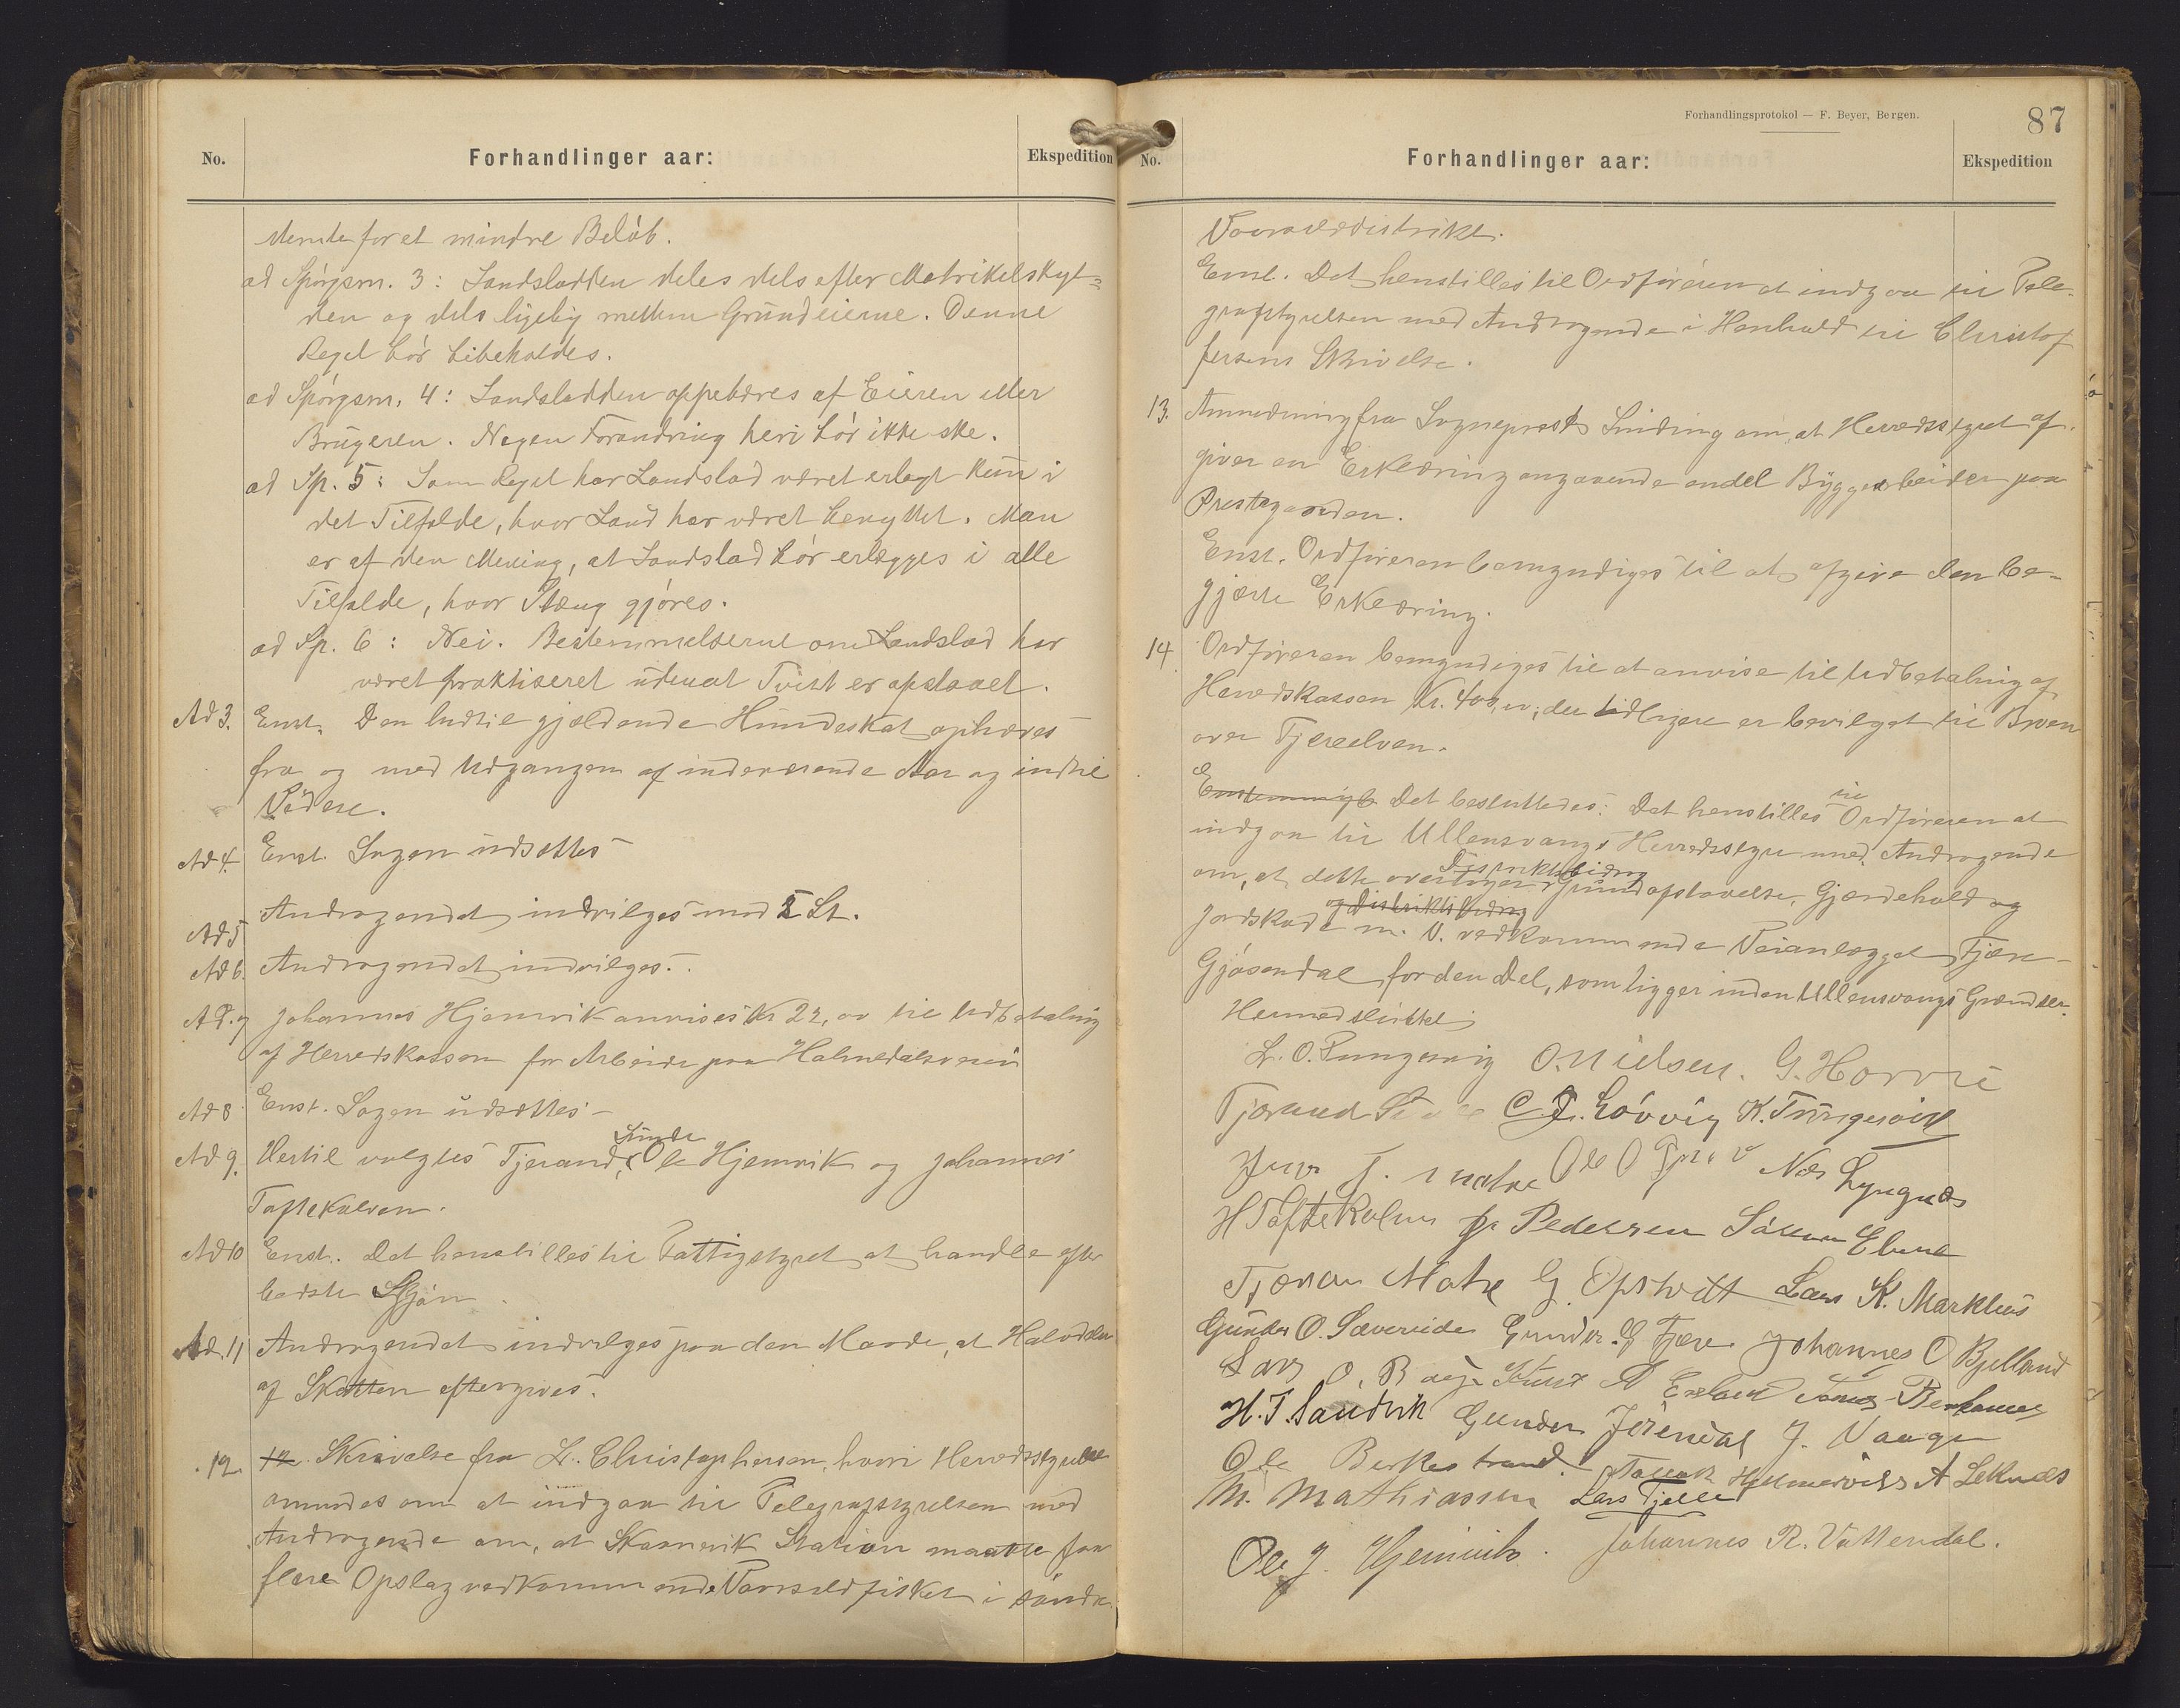 No.
Forhandlinger aar:
Ekspedition
mente for et mindre Beløb.
ad Spörgsm. 3: Landslodden deles dels efter Matrikelskyl-
den og dels ligelig mellem Grundeierne. Denne
Regel bör bibeholdes.
ad Spörgsm. 4: Landslodden oppebæres af Eieren eller
Brugeren. Nogen Forandring heri bör ikke ske.
ad Sp. 5: Som Regel har Landslod været erlagt kun i
det Tilfælde, hvor Land har været benyttet. Man
er af den Mening, at Landslod bör erlægges i alle
Tilfælde, hvor Stæng gjöres.
ad Sp. 6: Nei. Bestemmelserne om Landslod har
været praktiseret uden at Tvist er opstaaet.
Ad 3. Enst. Den hidtil gjældende Hundeskat ophæves
fra og med Udgangen af indeværende Aar og indtil
Videre.
Ad 4. Enst. Sagen udsættes
Ad 5 Andragendet indvilges mod 2 St.
Ad 6. Andragendet indvilges.
Ad. 7 Johannes Hjemvik anvises Kr 22,00 til Udbetaling
af Herredskassen for Arbeide paa Holmedalsveien
Ad 8 Enst. Sagen udsættes
Ad 9. Hertil valgtes Tjerand Sunde, Ole Hjemvik og Johannes
Toftekalven.
Ad 10 Enst. Det henstilles til Fattigstyret at handle efter
bedste Skjön.
Ad. 11 Andragendet indvilges paa den Maade, at Halvdelen
af Skatten eftergives.
12. 12. Skrivelse fra L. Christophersen, hvori Herredsstyrelse
anmodes om at indgaa til Telegrafstyrelsen med
Andragende om, at Skaanevik Station maatte faa
flere Opslag vedkommende Vaarsildfisket i söndre
Forhandlingsprotokol — F. Beyer, Bergen.
87
No.
Forhandlinger aar:
Ekspedition
Vaarsilddistrikt.
Enst. Det henstilles til Ordföreren at indgaa til Tele-
grafstyrelsen med Andragende i Henhold til Christof
fersens Skrivelse.
13. Anmodning fra Sogneprest Sinding om, at Herredsstyret af-
giver en Erklæring angaaende endel Byggearbeider paa
Prestegaarden.
Enst. Ordföreren bemyndiges til at afgive den be-
gjærte Erklæring.
14. Ordföreren bemyndiges til at anvise til Udbetaling af
Herredskassen Kr. 400,00, der tidligere er bevilget til Broen
over Fjæreelven.
Enstemmigt Det besluttedes: Det henstilles til Ordföreren at
indgaa til Ullensvangs Herredsstyre med Andragende
om, at dette overtager Distriktsbidrag Grundafstaaelse, Gjærdehold og
Jordskade og Distriktsbidrag m. V. vedkommende Veianlægget Fjære-
Gjösendal for den Del, som ligger inden Ullensvangs Grændser.
Hermed sluttet
L. O. Tungesvig O. Nielsen. G. Horvei
Tjerand C. J. Lövvig K. Tungesvik
J. Matre Ole O Næs Lyngnæs
H Toftekalven P Pedersen Sören Ebne
Tjeran Matre G. Opstvedt Lars K. Markhus
Gunder O. Sævereide Gunder G Fjære Johannes O Bjelland
Lars O. Knut A Eseland Tönnes
H. T. Sandvik Gunder J. Vaage
Ole Berkestrand. Tollak A Leknæs
M. Mathiassen Lars Fjelle
Ole J. Hjemvik. Johannes R. Vattendal.